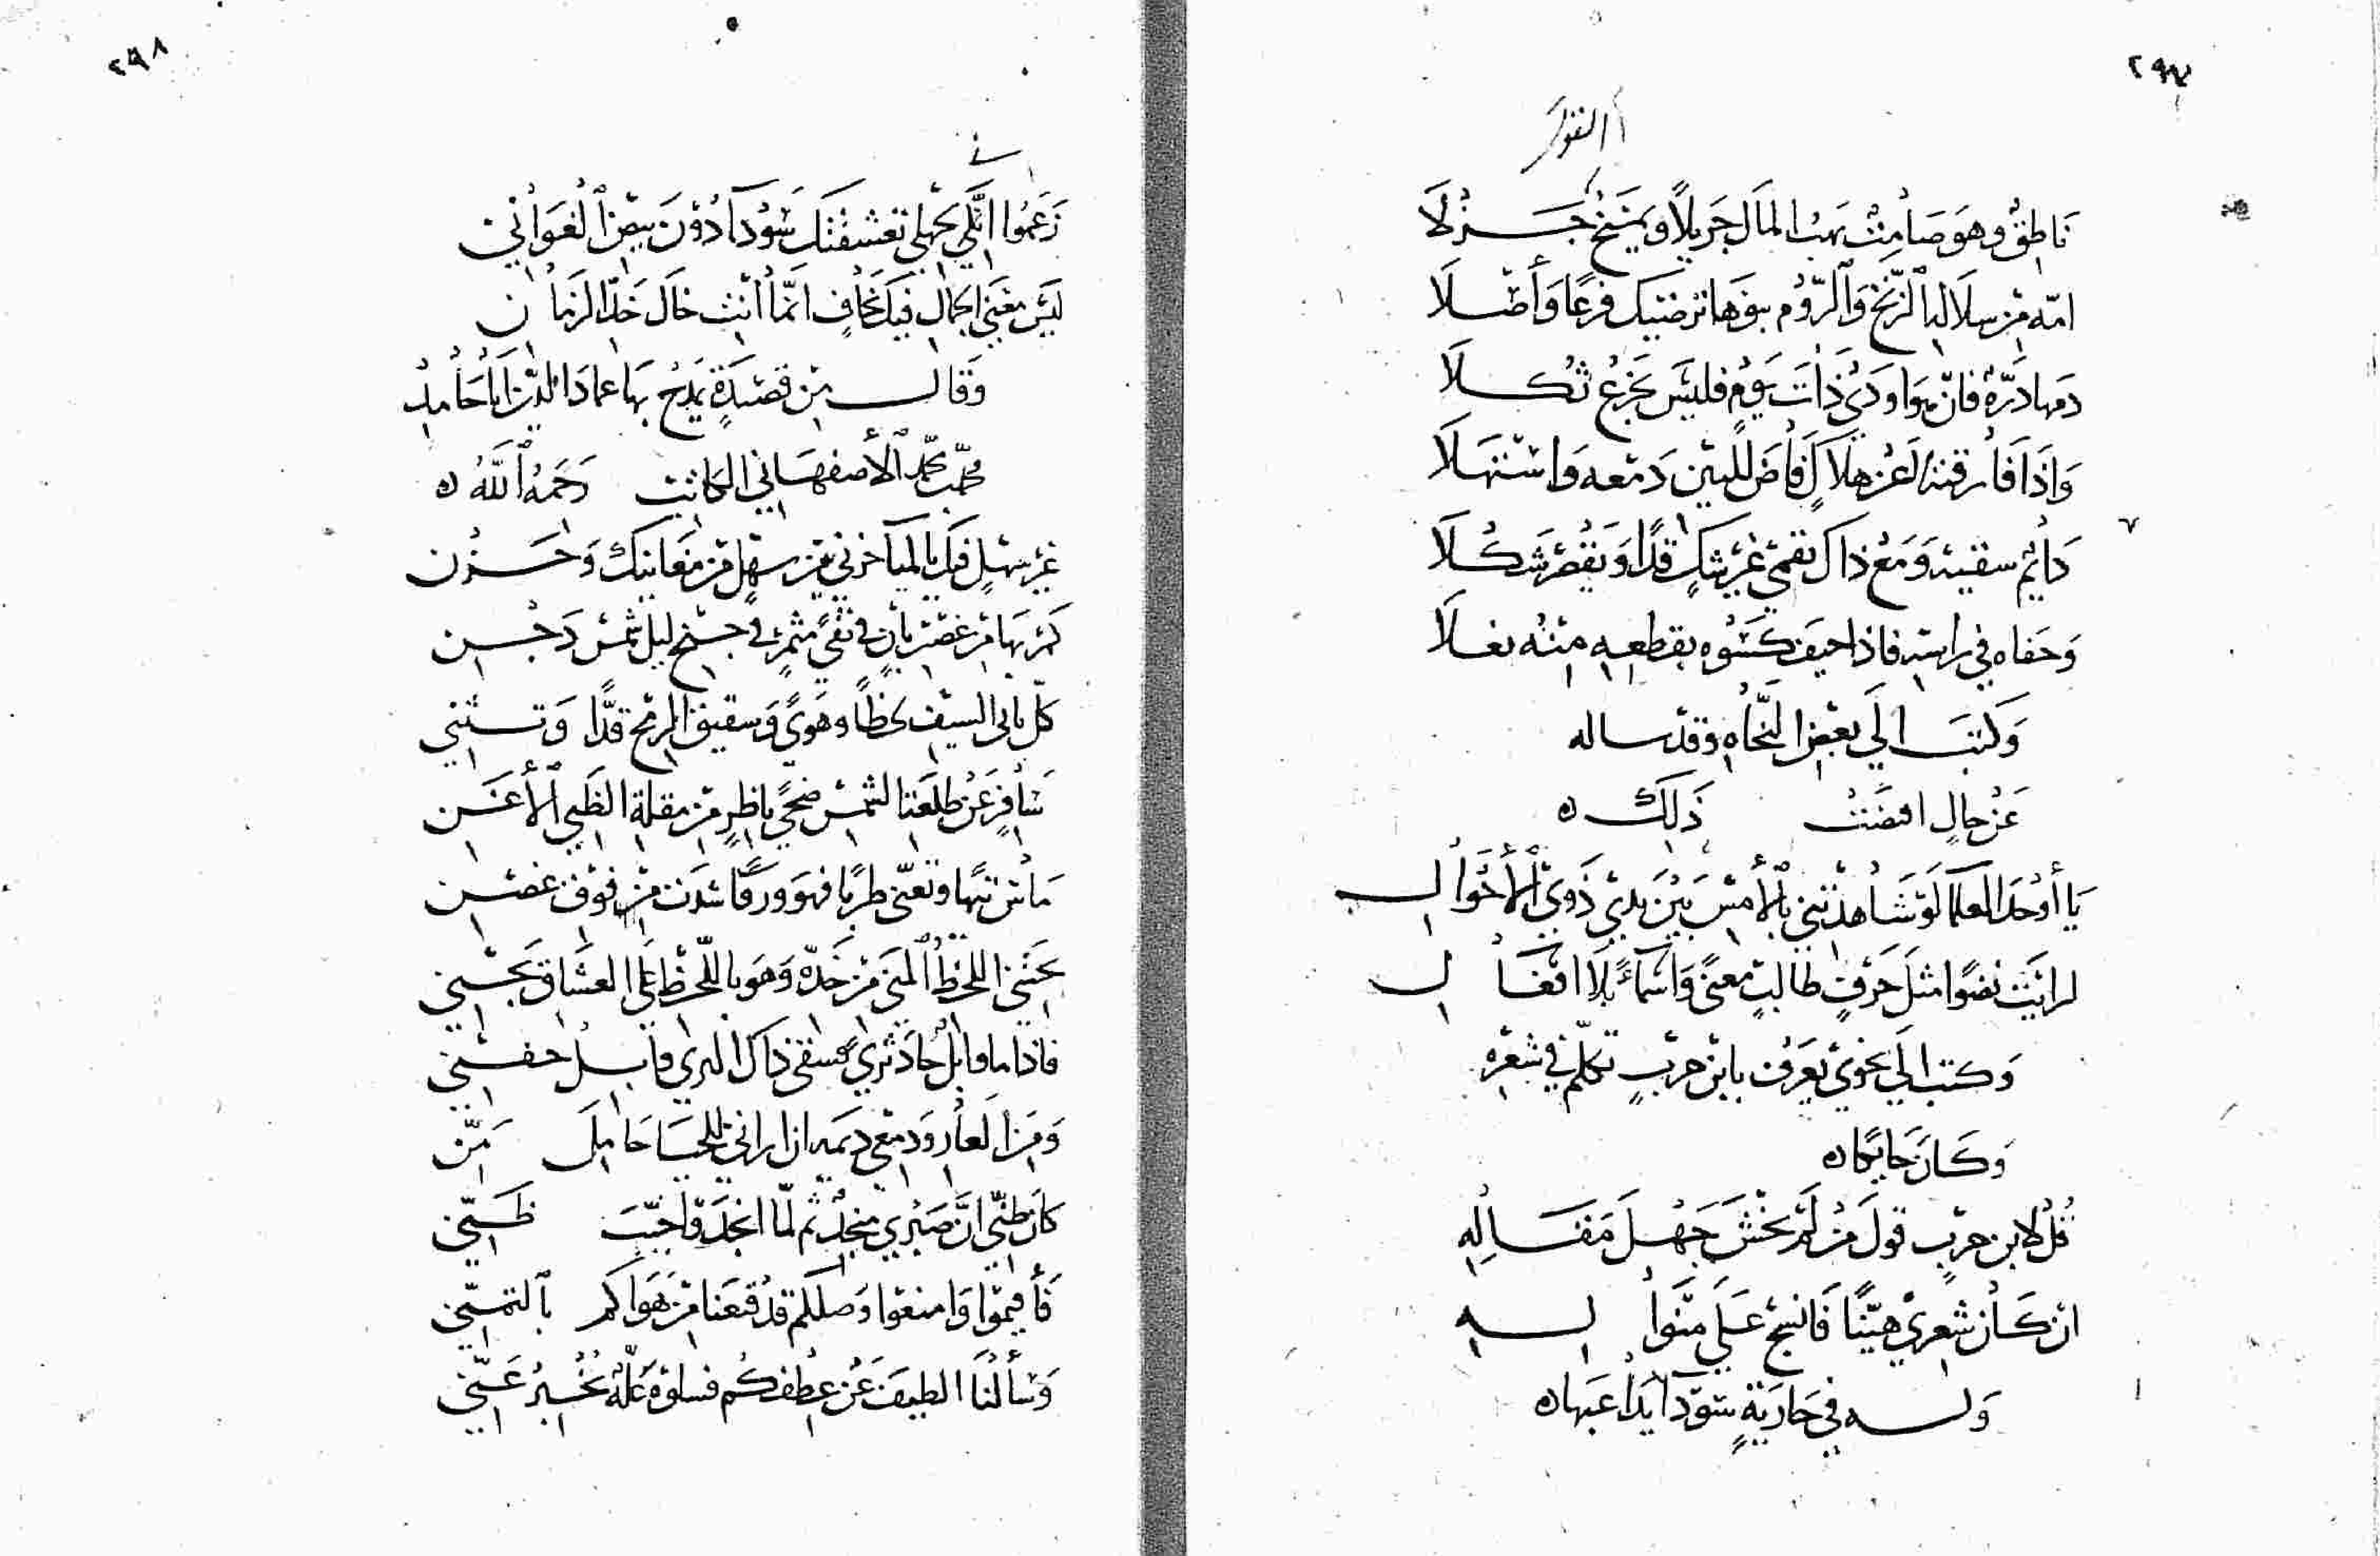 ٢٩٧
نَاطِقٌ وهوَ صَامتٌ يهبُ المَال جَزيلًا ويمنَحُ جَزْلَا
امّه مِنْ سلالة الزّنج وَالرّوُم بنوهَا ترضيك فرعًا وَأصْلَا
دمها دَرّهُ فانْ هوَ اودَىْ ذَاتَ يَوْمٍ فليْسَ تجزعُ ثكلَا
وَاذَا فَارقتهُ لَعُرْ هلَالٍ فَاضَ للبَيْن دَمْعه وَاسْتهَلَا
دَايم سقيه وَمَعْ ذاك
وَحفاه في راسه فاذا حيف كسَوْه بقطعه منْه نعلَا
وَكتبَ الَي بعْض النّحَاه وقدْ ساله
عَنْ حالٍ اقتضَتْ ذَلِكَ ه
يَا أوْحَدَ العلمَا لَوْ شَاهدْتني بالْأَمْسِ بَيْنَ يدَيْ ذَوِيْ الْأَحْوَالِ
لرايْتَ نضوًا مثلَ حَرْفٍ طالبٍ معنىً وَاسْمَاءً بلَا افعَالِ
وَكتب الَي نحْويّ يعرَف بابْن حرْبٍ تكلّم في شعْره
وَكَانَ حَايكًا ه
قُلْ لابن حرْبٍ قولَ مَنْ لَمْ يخْشَ جَهْلَ مَقَالِهِ
انْ كَانَ شِعرِيْ هيّنًا فَانسجْ عَلَي منْوَالِهِ
وَلَه في جَاريَةٍ سَوْدَا يدَاعبَها ه
٢٩٨
زَعَمُوا انّني بجَهلي تعَشّقتكِ سَوْدَآ دُوْنَ بيْض الْغوَاني
ليْسَ معْنَي الجمال فيكِ بخَافٍ انّمَا انْتِ خَال خَدّ الزمَان
وَقَال مِن قصيْدَةٍ يمدَحُ بهَا عمادَ الدّيْن ابَا حَامِد
محمّد بن محمّد الْأصفهَاني الكاتب رَحمَهُ اللَّهُ ه
غيْر سَهلٍ فيكِ يا لميَآ حزني بيْن سهْلٍ منْ مغَانيكِ وَحَزْن
كمْ بهَا منْ غصْن بانٍ في نقيً مثمرٍ في جنْح ليل شمْسَ دَجْن
كلّ بالي السيْف لحظًا وهَويً وَشقيق الرمْح قدًّا وَتثنّي
سَافرٍ عَنْ طلعَة الشمْس ضحيً ناظرٍ منْ مقلة الظَبي الْأغَن
مَاسَ تيهًا وتغنّى طربًا فهوَ وَرقَا شدَت منْ فوْق غصْن
يجتَني اللحظ المنَي منْ خَدّه وَهوَ باللّحْظ عَلَي العشَاق يجْني
فاذا ما قابلْ
وَمِنَ العَار وَدمْعي ديمَه ان ارانيْ للحيَا حَامِلَ مَنّ
كَانَ ظنّي انّ صَبْري منجدٌ ثم لمّا انجَدُوا خيّبَ ظَنّي
فَأقيمُوا وَامنعُوا وَصلكم قدْ قنعْنَا منْ هَوَاكم بالتمنّي
وَسَألْنَا الطيفَ عَنْ عطفكُم فسلوْهُ عَلّهُ يُخْبِرُ عَنّي